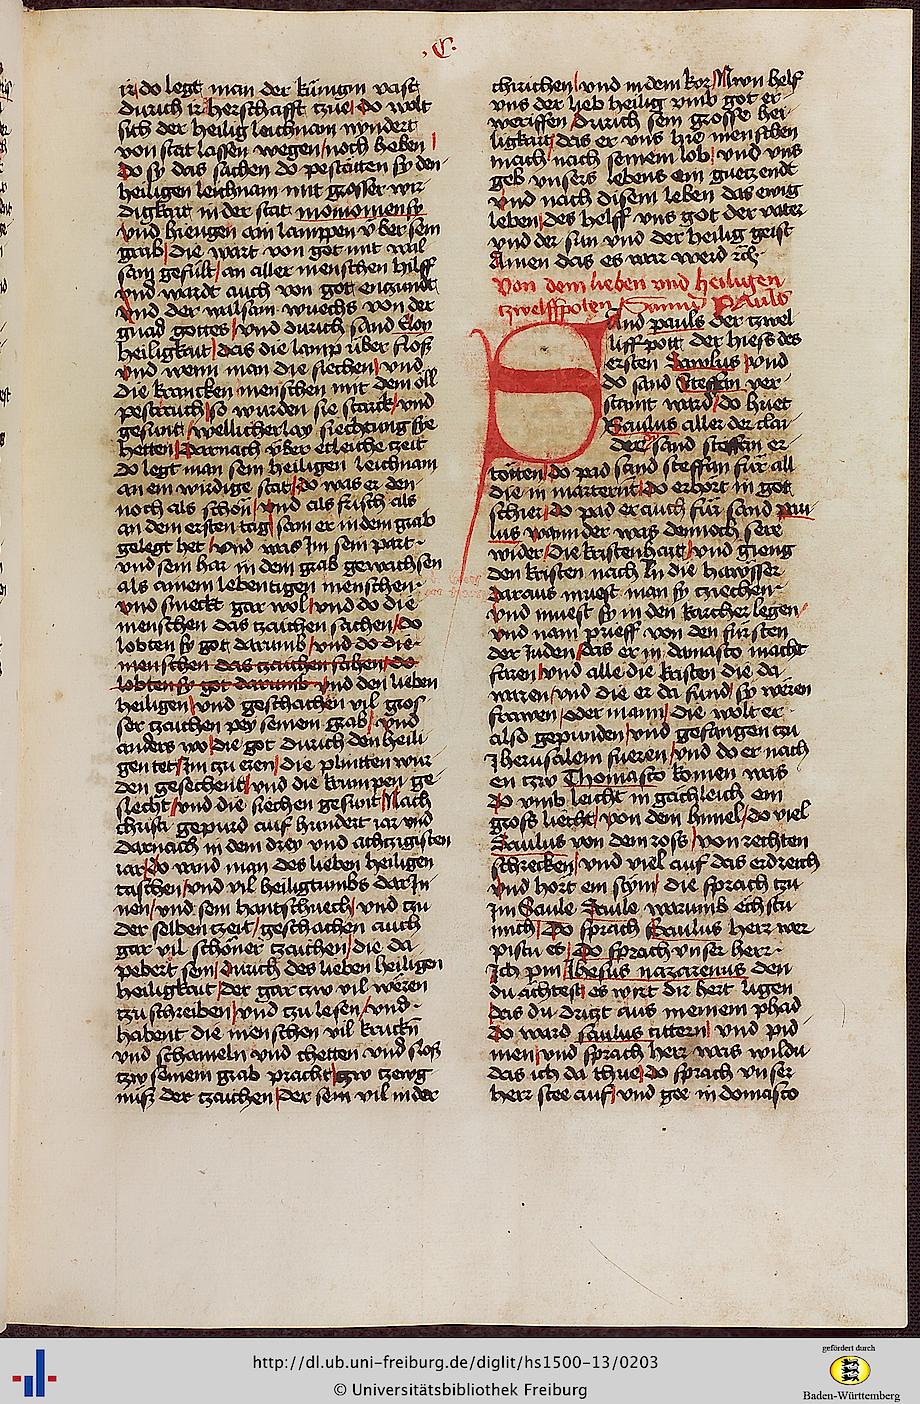 .C.
ir do legt man der künigin vast
durich ir herschafft tzue do wolt
sich der heilig leichnam nyndert
von stat lassen wegen noch heben
Do sy das sachen do pestatten sy den
heiligen leichnam mit grosser wir
digkait in der stat momomensy
vnd hiengen ain lamppen vber sein
grab die wart von got mit wal
sam gefült an aller menschen hilff
vnd wardt auch von got entzundt
vnd der walsam wuechs von der
gnad gottes vnd durich sand Eloy
heiligkait das die lamp über floß
vnd wenn man die siechen vnd
die krancken menschen mit dem öll
pestraich so wurden sie starck vnd
gesunt wellicherlay siechtung sye
hetten Darnach vber etleiche tzeit
do legt man sein heiligen leichnam
an ein wirdige stat do was er den
noch als schön vnd als frisch als
an dem ersten tag sam er in dem grab
gelegt het vnd was Im sein part
vnd sein har in dem grab gewachsen
als ainem lebentigen menschen
vnd smeckt gar wol vnd do die
menschen das tzaichen sachen do
lobten sy got darumb vnd do die
menschen das tzaichen sachen do
lobten sy got darumb vnd den lieben
heiligen vnd geschachen vil gros
ser tzaichen pey seinem grab vnd
anders wo die got durich den heili
gen tet Im zu eren die plinten wur
den gesechent vnd die krumpen ge
slecht vnd die siechen gesunt Nach
christi gepurd auf hundert iar vnd
darnach in dem drey vnd achtzigisten
iar do vand man des lieben heiligen
taschen vnd vil heiligtumbs dar In
nen vnd sein hantschuech vnd tzu
der selben tzeit geschachen auch
gar vil schöner tzaichen die da
pebert sein durich des lieben heiligen
heiligkait der gar tzw vil weren
tzu schreiben vnd tzu lesen vnd
habent die menschen vil kruckn
vnd schameln vnd chetten vnd slos
tzw seinem grab pracht tzw tzewg
nuß der tzaichen der sein vil in der
chirichen vnd in dem kor Nwn helf
vns der lieb heilig vmb got er
werffen durich sein grosse hei
ligkait das er vns hie menschen
mach nach seinem lob vnd vns
geb vnsers lebens ein guetz endt
vnd nach disem leben das ewig
leben des helff vns got der vater
vnd der sun vnd der heilig geist
Amen das es war werd
Von dem lieben vnd heiligen
tzwelffpoten Sannd Pauls
Sand pauls der tzwel
liff pott der hiess des
ersten Sawlus vnd
do sand Steffan ver
staint ward do huet
Saulus aller der clai
der sand steffan er
tötten do pad sand steffan für all
die in marternt do erhört in got
schier do pad er auch für sand pau
lus wann der was dennoch sere
wider die kristenhait vnd gieng
den kristen nach In die hawsser
daraus muest man sy tziechen
vnd muest sy in den karcher legen
vnd nam prieff von den fursten
der Juden das er in damasco mecht
faren vnd alle die kristen die da
waren vnd die er da fund sy weren
frawen oder mann die wolt er
also gepunden vnd gefangen tzu
Jherusalem fueren vnd do er nach
en tzw Thomasco komen was
do vmb leicht in gachleich ein
gross liecht von dem himel do viel
Saulus von dem ross von rechten
schrecken vnd viel auf das erdreich
vnd hort ein stym die sprach tzu
im Saule Saule warumb echstu
mich Do sprach Saulus herr wer
pistu es Do sprach vnser herr
Ich pin Jhesus nazarenus den
du achtest es wirt dir hert ligen
das du dritzt aus meinem phad
Do ward saulus tittern vnd pid
men vnd sprach herr was wildu
das ich da thue do sprach vnser
herr stee auf vnd gee in domasco
http://dl.ub.uni-freiburg.de/diglit/hs1500-13/0203
© Universitätsbibliothek Freiburg
gefördert durch
Baden-Württemberg